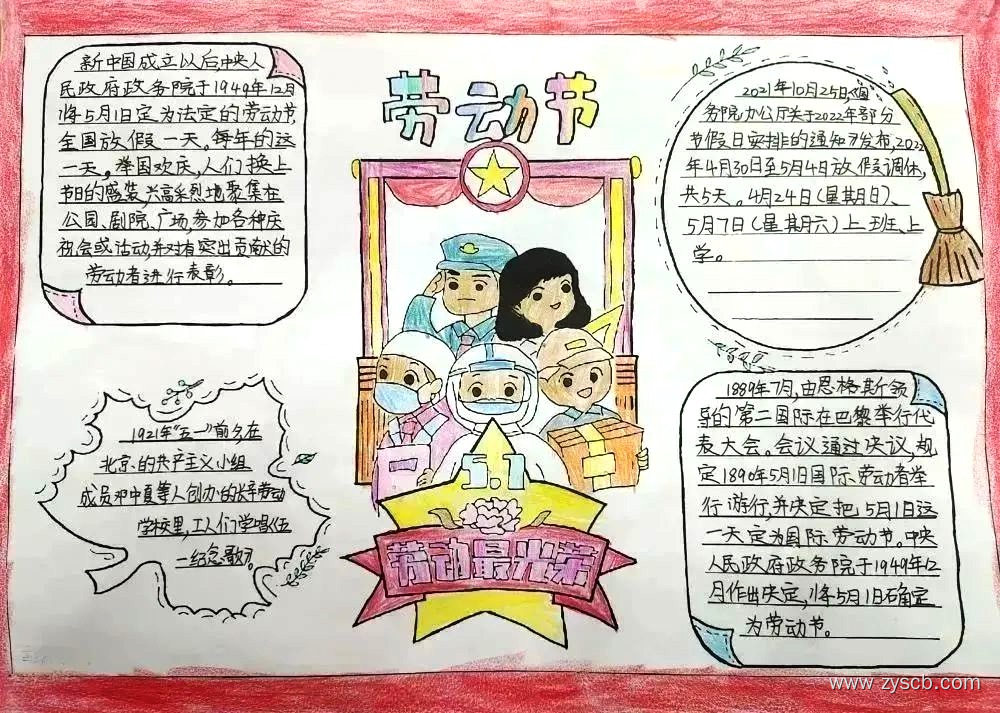 劳动节
新中国成立以后,中央人
民政府政务院于1949年12月
将5月1日定为法定的劳动节,
全国放假一天。每年的这
一天。举国欢庆,人们换上
节日的盛装兴高采烈地聚集在
公园、剧院、广场,参加各种庆
祝会或活动,并对有突出贡献的
劳动者进行表彰。
1921年“五一”前夕在
北京的共产主义小组
成员邓中夏等人创办的长辛劳动
学校里,工人们学唱《五
一纪念歌》。
5.1
劳动最光荣
2021年10月25日,《国
务院办公厅关于2022年部分
节假日安排的通知》发布,2022
年4月30日至5月4日放假调休,
共5天。4月24日(星期日)、
5月7日(星期六)上班、上
学。
1889年7月,由恩格斯领
导的第二国际在巴黎举行代
表大会。会议通过决议,规
定1890年5月1日国际劳动者举
行游行,并决定把5月1日这
一天定为国际劳动节。中央
人民政府政务院于1949年12
月作出决定,将5月1日确定
为劳动节。
www.zyscb.com